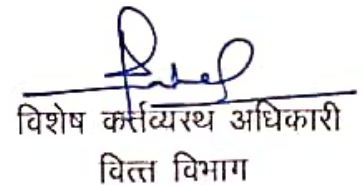 विशेष कर्त्तव्यस्थ अधिकारी
वित्त विभाग